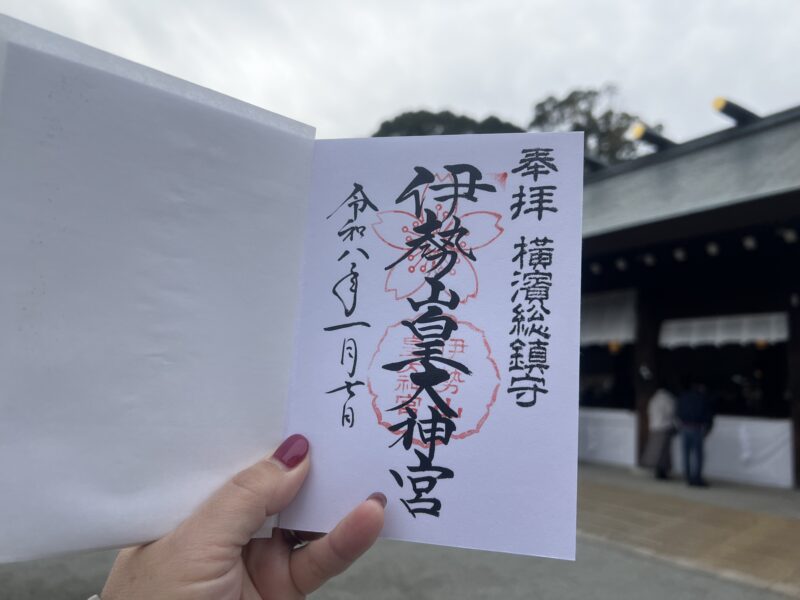 奉拝 横濱総鎮守
伊勢山皇大神宮
令和八年一月七日
伊勢山
皇大神宮